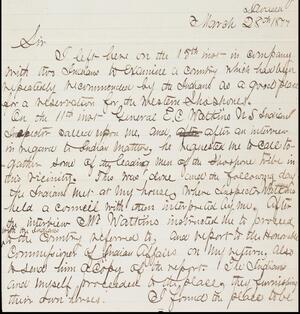 March 28th 1877
Sir
I left here on the 13th inst in company
with two Indians to Examine a country which had been
repeatedly recommended by the Indians as a good place
for a reservation for the Western Shoshones.
On the 11th inst General E.C Watkins U.S Indian
Inspector called upon me, and, after an interview
in regard to Indian Matters, he requested me to call to-
gather some of the leading men of the Shoshone tribe in
this vicinity. This was done and the following day
the Indians met at my house, when Inspector Watkins
held a council with them interpreted by me, After
the interview Mr Watkins instructed me to proceed
with the Indians
to the Country referred to, and report to the Honorable
Commissioner of Indian Affairs on my return, Also
to send him a Copy of the report. The Indians
and Myself proceeded to the place, they furnishing
their own horses. I found the place to be